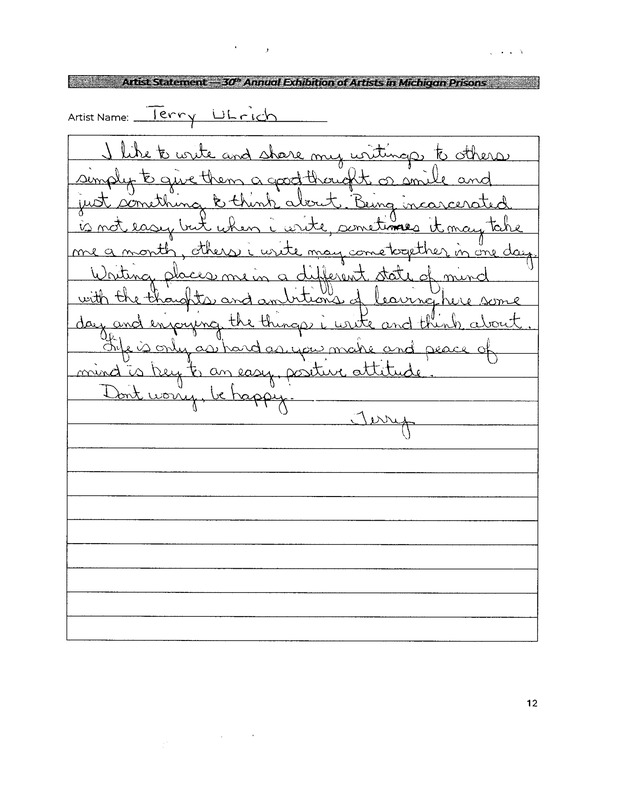 Artist Statement — 30th Annual Exhibition of Artists in Michigan Prisons
Artist Name: Terry Ulrich
I like to write and share my writings to others
simply to give them a good thought or smile and
just something to think about. Being incarcerated
is not easy but when i write, sometimes it may take
me a month, others i write may come together in one day.
Writing places me in a different state of mind
with the thoughts and ambitions of leaving here some
day and enjoying the things i write and think about.
Life is only as hard as you make and peace of
mind is key to an easy, positive attitude.
Dont worry, be happy.
Terry
12